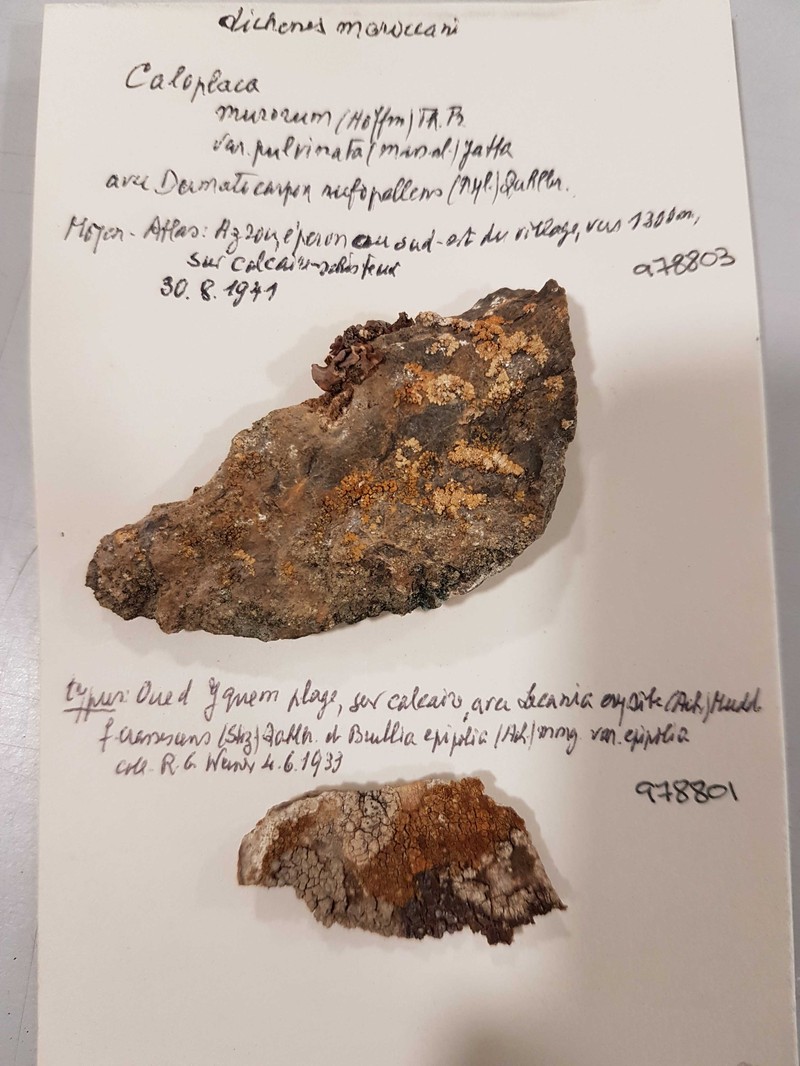 Lichenes maroccani
Caloplaca
murorum (Hoffm) Th. Fr.
var. pulvinata (massal.) Jatta
avec Dermatocarpon rufopallens (Nyl.) Zahlbr.
Moyen-Atlas: Azrou, éperon au sud-est du village, vers 1300m,
sur calcaire-schisteux
a78803
30.8.1941
typus: Oued Yquem plage, sur calcaire, avec Lecania erysibe (Ach.) Mudd
f. (Stzbg) Zahlbr. et Buellia epipolia (Ach.) mong. var. epipolia
coll. R. G. Werner 4.6.1933
a78801